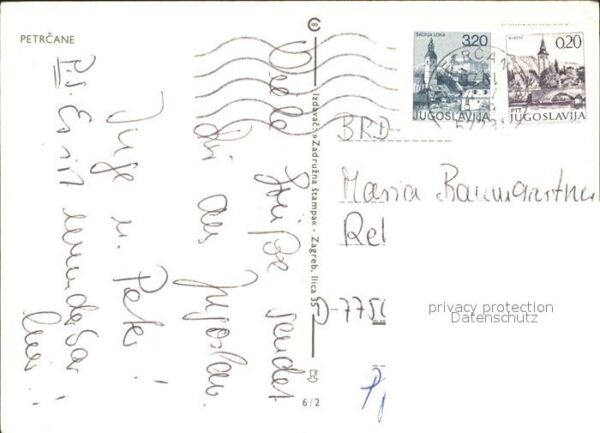 PETRČANE
Viele Grüße sendet
dir aus Jugoslav.
Inge u. Peter!
P.S. Es ist wunderbar
hier!
Izdavač: »Zadružna štampa« - Zagreb, Ilica 35
6/2
ŠKOFJA LOKA
3.20
JUGOSLAVIJA
0.20
PTT
JUGOSLAVIJA
BRD
Maria Baumgartner
D-775
privacy protection
Datenschutz